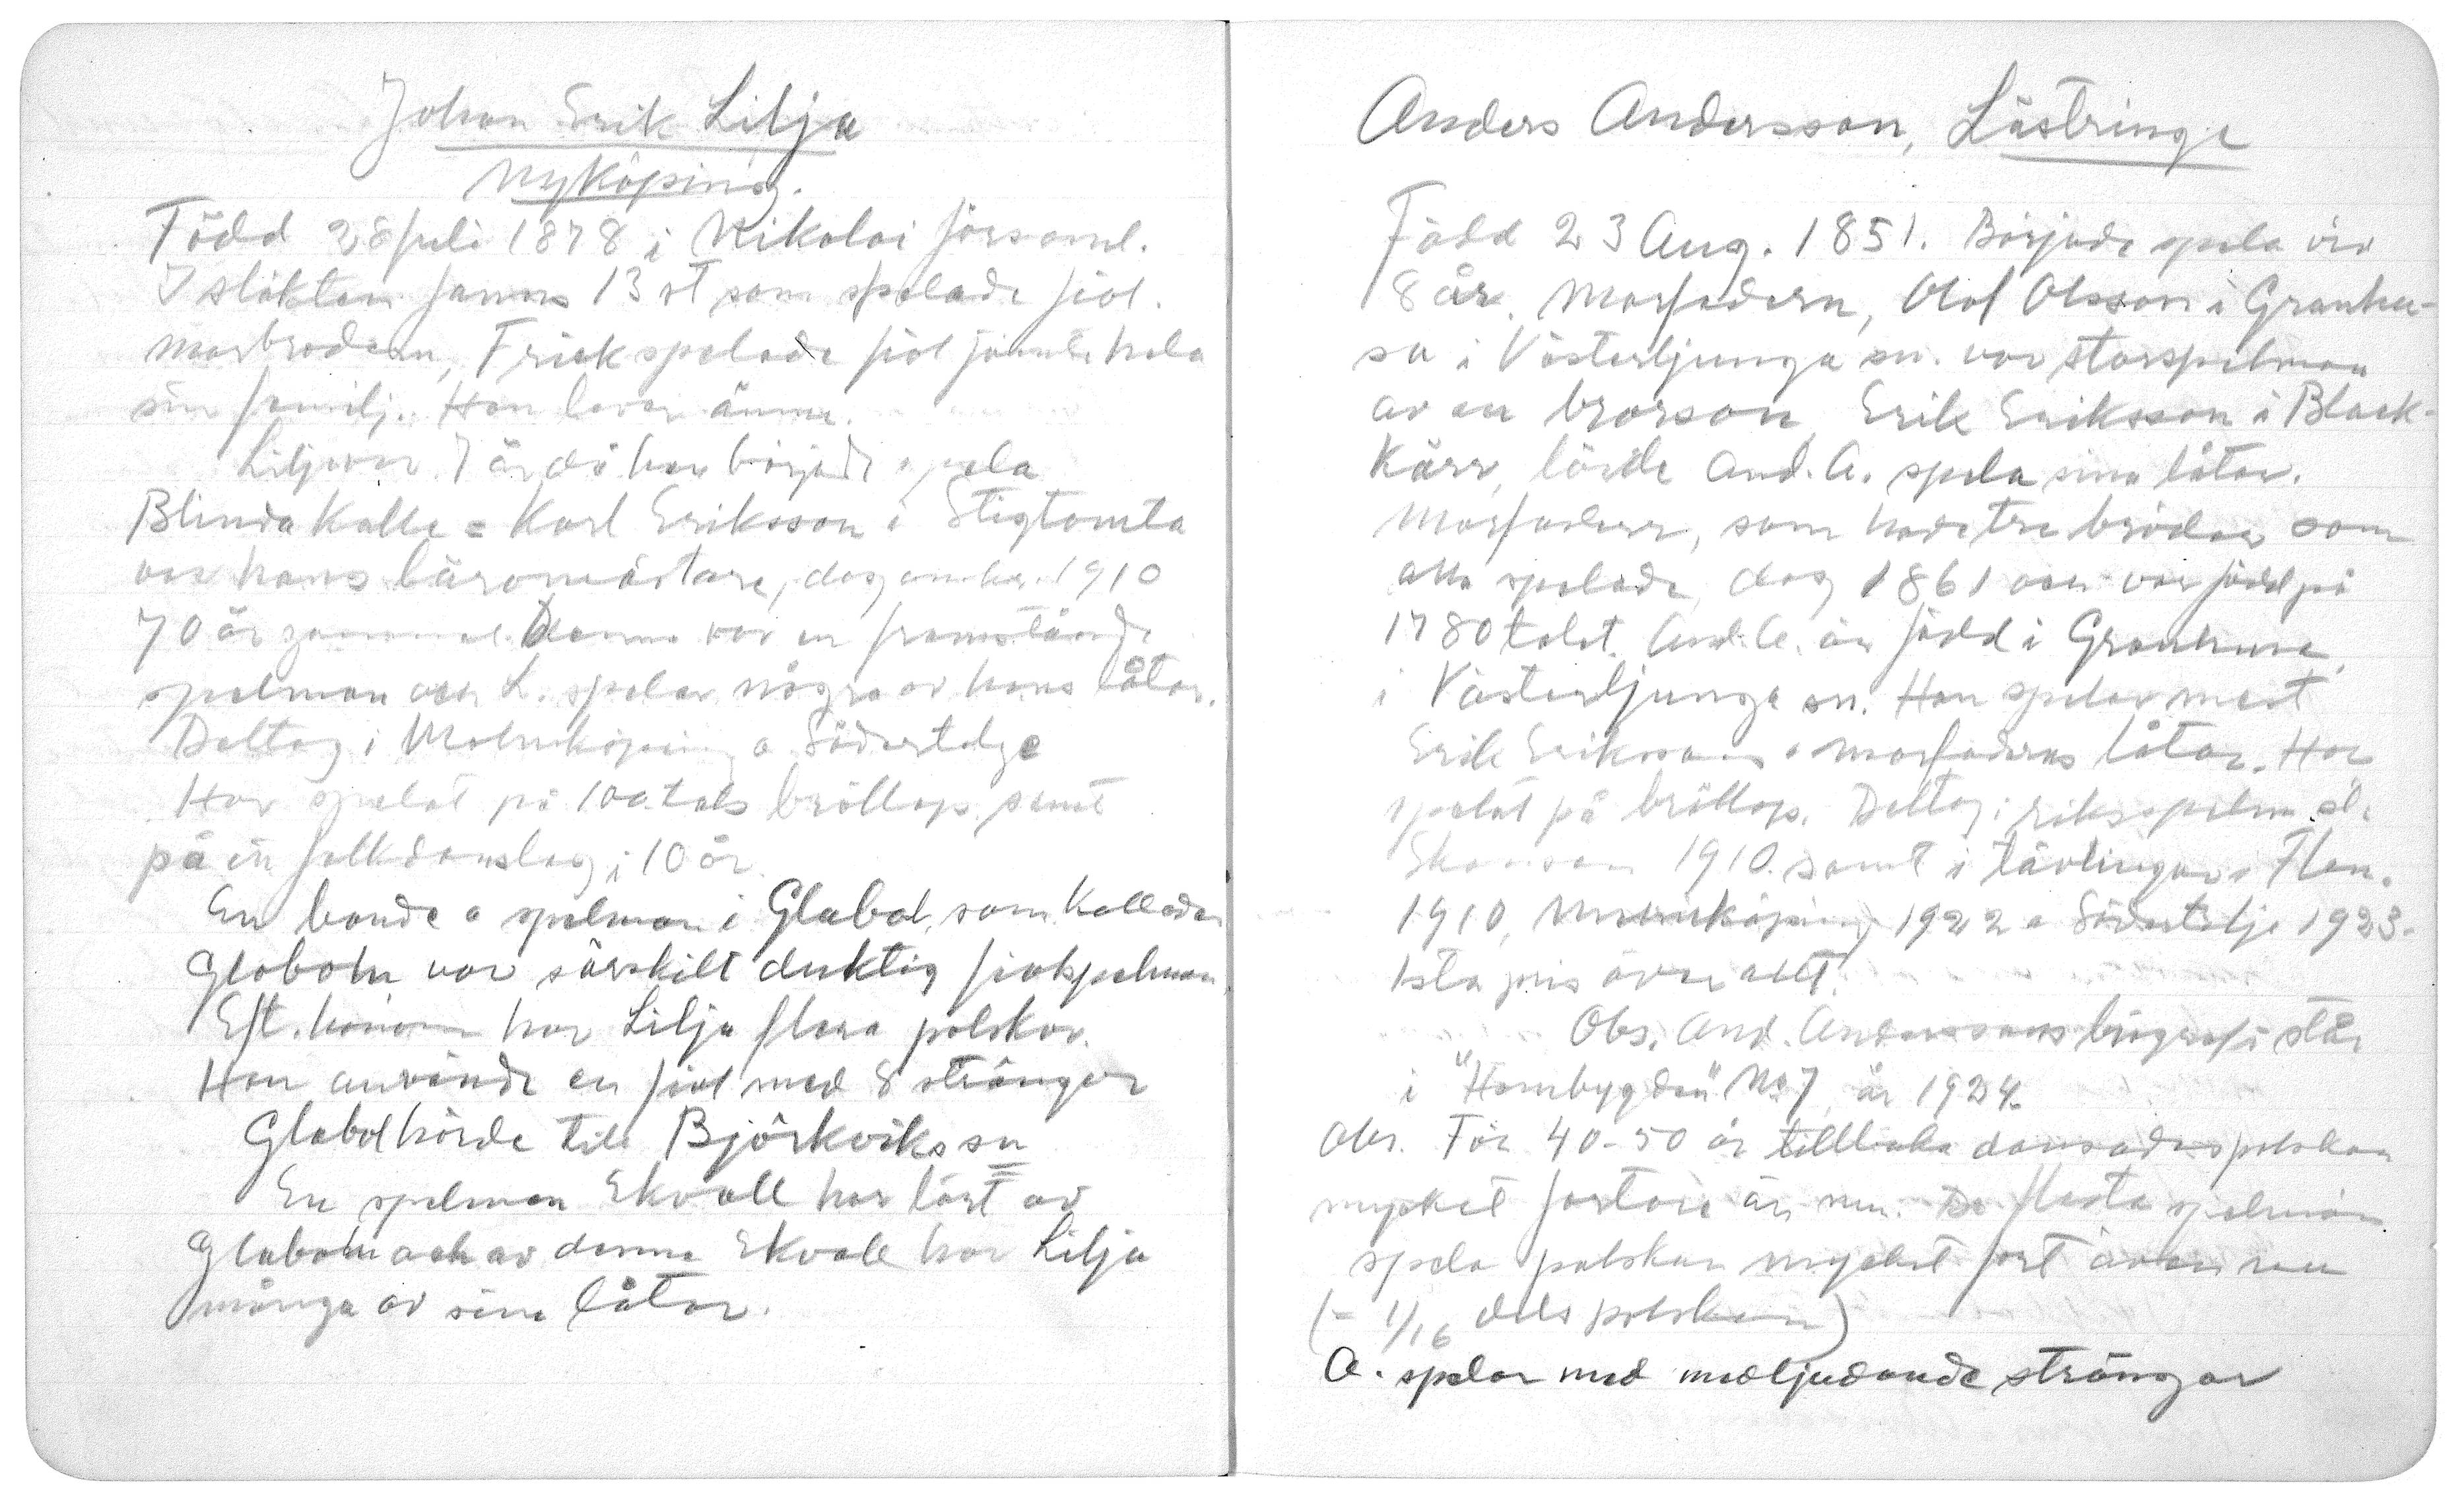 Johan Erik Lilja
Nyköping.
Född 28 Juli 1878 i Nikolai församl.
I släkten fanns 13 st som spelade fiol.
Morbrodern, Frisk spelade fiol jämte hela
sin familj. Han lever ännu.
Lilja var 7 år då han började spela
Blinda Kalle = Karl Eriksson i Stigtomta
var hans läromästare, dog omkr. 1910
70 år gammal. Denne var en framstående
spelman och L. spelar några av hans låtar.
Deltog i Malmköping o Södertelge
Har spelat på 100tals bröllop samt
på en folkdanslag i 10 år.
En bonde o spelman i Glabol, som kallades
Glaboln var särskilt duktig fiolspelman.
Eft. honom har Lilja flera polskor.
Han använde en fiol med 8 strängar
Glabol hörde till Björkviks sn
En spelman Ekvall har lärt av
Glaboln och av denne Ekvall har Lilja
många av sina låtar.
Anders Andersson, Lästringe
Född 23 Aug. 1851. Började spela vid
8 år. Morfadern, Olof Olsson i Granhu-
su i Västerljunga sn. var storspelman
av en brorson, Erik Eriksson i Black-
kärr, lärde And. A. spela sina låtar.
Morfadern, som hade tre bröder som
alla spelade, dog 1861 och var född på
1780 talet. And. A. är född i Granhusu,
i Västerljunga sn. Han spelar mest
Erik Erikssons o morfaderns låtar. Har
spelat på bröllop. Deltog i riksspelm.st.
Skansen 1910 samt i tävlingar i Flen.
1910, Malmköping 1922 o Södertelje 1923.
1sta pris över allt.
Obs. And. Anderssons biografi står
i "Hembygden" No 7, år 1924.
Obs. För 40-50 år tillbaka dansades polskan
mycket fortare än nu. De flesta spelmän
spela polskan mycket fort även nu
(= 1/16 dels polskan)
A. spelar med medljudande strängar